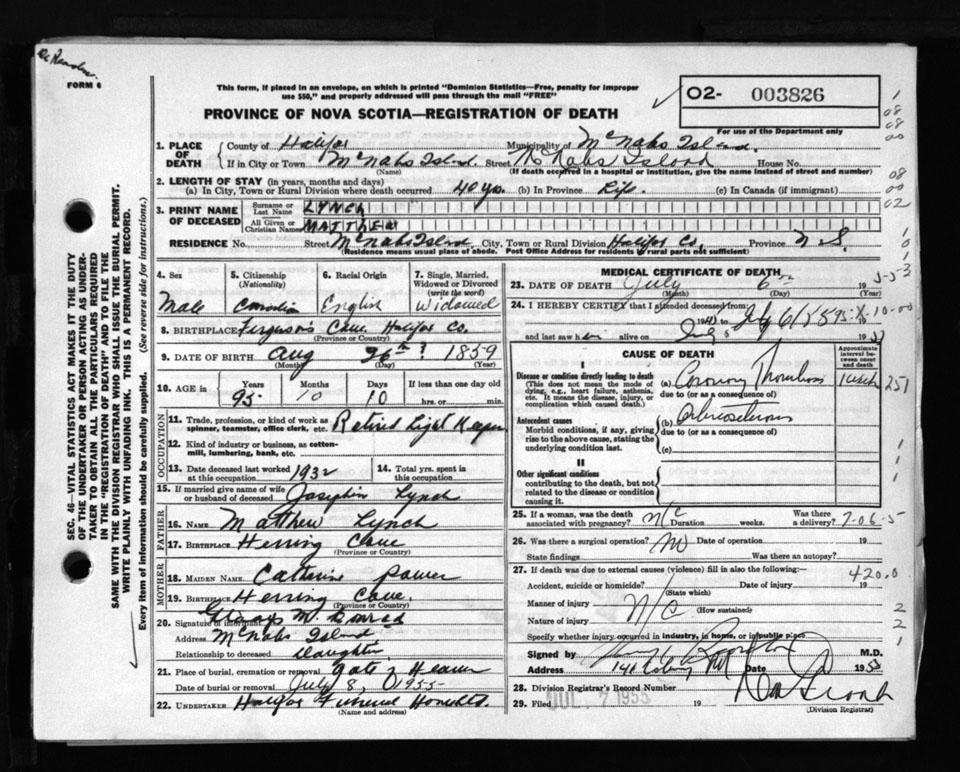 FORM 6
This form, if placed in an envelope, on which is printed "Dominion Statistics—Free, penalty for improper
use $50," and properly addressed will pass through the mail "FREE"
PROVINCE OF NOVA SCOTIA—REGISTRATION OF DEATH
O2- 003826
For use of the Department only
1. PLACE OF DEATH
County of Halifax Municipality of McNabs Island.
If in City or Town McNabs Island. Street McNabs Island House No.
(Name) (If death occurred in a hospital or institution, give the name instead of street and number)
2. LENGTH OF STAY (in years, months and days)
(a) In City, Town or Rural Division where death occurred 40 yrs. (b) In Province Life. (c) In Canada (if immigrant)
3. PRINT NAME OF DECEASED
Surname or Last Name LYNCH
All Given or Christian Names MATTHEW
RESIDENCE No. Street McNabs Island City, Town or Rural Division Halifax Co. Province N.S.
(Residence means usual place of abode. Post Office Address for residents of rural parts not sufficient)
4. Sex 5. Citizenship (Nationality) 6. Racial Origin 7. Single, Married, Widowed or Divorced (write the word)
Male Canadian English Widowed
8. BIRTHPLACE Ferguson's Cove Halifax Co.
(Province or Country)
9. DATE OF BIRTH Aug 26th 1859
(Month) (Day) (Year)
10. AGE in Years Months Days If less than one day old
95 10 10 hrs. or min.
OCCUPATION
11. Trade, profession, or kind of work as spinner, teamster, office clerk, etc. Retired Light Keeper
12. Kind of industry or business, as cotton-mill, lumbering, bank, etc.
13. Date deceased last worked at this occupation 1932
14. Total yrs. spent in this occupation
15. If married give name of wife or husband of deceased Josephin Lynch
FATHER
16. NAME Matthew Lynch
17. BIRTHPLACE Herring Cove
(Province or Country)
MOTHER
18. MAIDEN NAME Catherine Power
19. BIRTHPLACE Herring Cove.
(Province or Country)
20. Signature of informant Gladys M. Conrad
Address McNabs Island
Relationship to deceased Daughter
21. Place of burial, cremation or removal Gate of Heaven
Date of burial or removal July 8, 1955
22. UNDERTAKER Halifax Funeral Home Ltd.
(Name and address)
MEDICAL CERTIFICATE OF DEATH
23. DATE OF DEATH July 6th 1955
(Month) (Day) (Year)
24. I HEREBY CERTIFY that I attended deceased from
to July 6/55
and last saw h alive on July 19
CAUSE OF DEATH
Approximate interval between onset and death
I
Disease or condition directly leading to death
(This does not mean the mode of dying, e.g., heart failure, asthenia, etc. It means the disease, injury, or complication which caused death.)
(a) Coronary Thrombosis 1 week
due to (or as a consequence of)
Antecedent causes
Morbid conditions, if any, giving rise to the above cause, stating the underlying condition last.
(b) Arteriosclerosis
due to (or as a consequence of)
(c)
II
Other significant conditions
contributing to the death, but not related to the disease or condition causing it.
25. If a woman, was the death associated with pregnancy? Duration weeks. Was there a delivery?
7-06-5
26. Was there a surgical operation? No Date of operation 19
State findings Was there an autopsy?
27. If death was due to external causes (violence) fill in also the following:—
420.0
Accident, suicide or homicide? Date of injury 19
(State which)
Manner of injury
(How sustained)
Nature of injury
Specify whether injury occurred in industry, in home, or in public place
Signed by M.D.
Address Date 1955
28. Division Registrar's Record Number
29. Filed JUL 7 1955 19
(Division Registrar)
SEC. 46—VITAL STATISTICS ACT MAKES IT THE DUTY
OF THE UNDERTAKER OR PERSON ACTING AS UNDER-
TAKER TO OBTAIN ALL THE PARTICULARS REQUIRED
IN THE "REGISTRATION OF DEATH" AND TO FILE THE
SAME WITH THE DIVISION REGISTRAR WHO SHALL ISSUE THE BURIAL PERMIT.
WRITE PLAINLY WITH UNFADING INK. THIS IS A PERMANENT RECORD.
Every item of information should be carefully supplied. (See reverse side for instructions.)